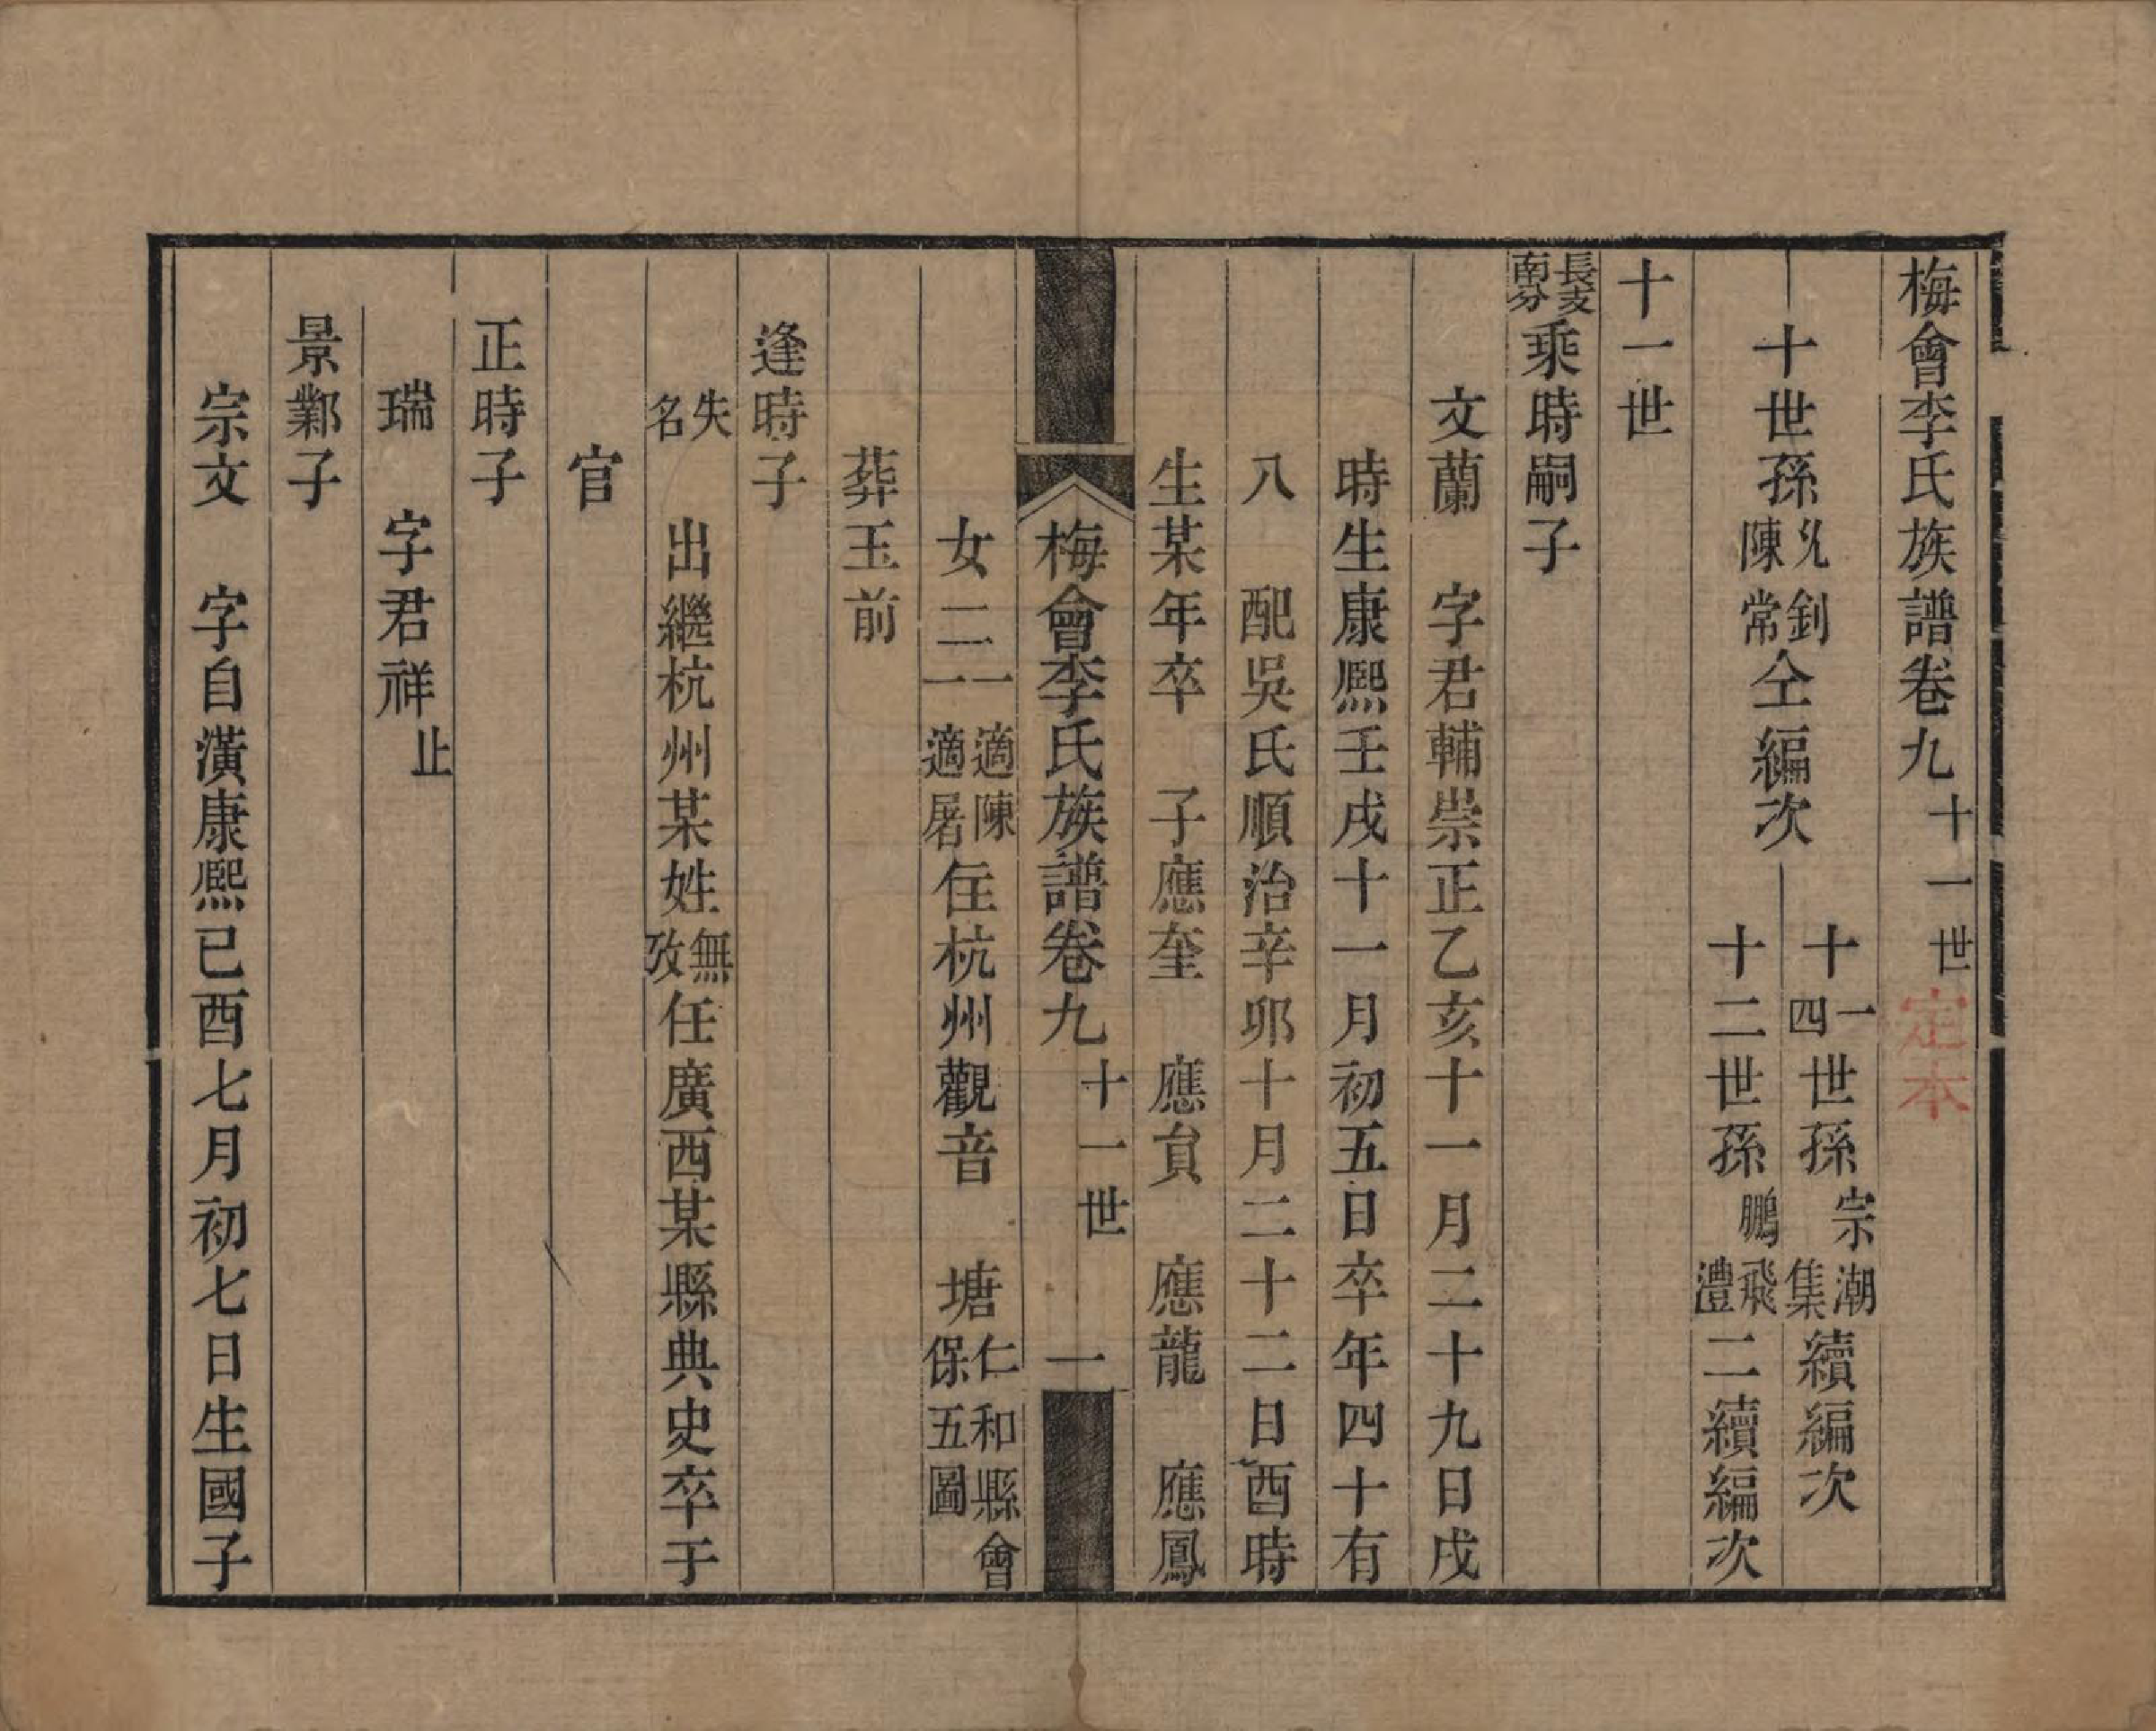 梅會李氏族譜卷九 十一世
定本
十世孫 釗 陳常 仝編次
十一四世孫 宗潮 集 續編次
十二世孫 鵬飛 灃 二續編次
十一世
長支南分 乘時嗣子
文蘭 字君輔崇正乙亥十一月二十九日戌
時生康熙壬戌十一月初五日卒年四十有
八 配吳氏順治辛卯十月二十二日酉時
生某年卒 子應奎 應貟 應龍 應鳳
梅會李氏族譜卷九 十一世 一
女二 一適陳 一適屠 住杭州觀音 塘 仁和縣會保五圖
葬玉前
逢時子
失名 出繼杭州某姓 無攷 任廣西某縣典史卒于
官
正時子
瑞 字君祥 止
景鄴子
宗文 字自潢康熙已酉七月初七日生國子